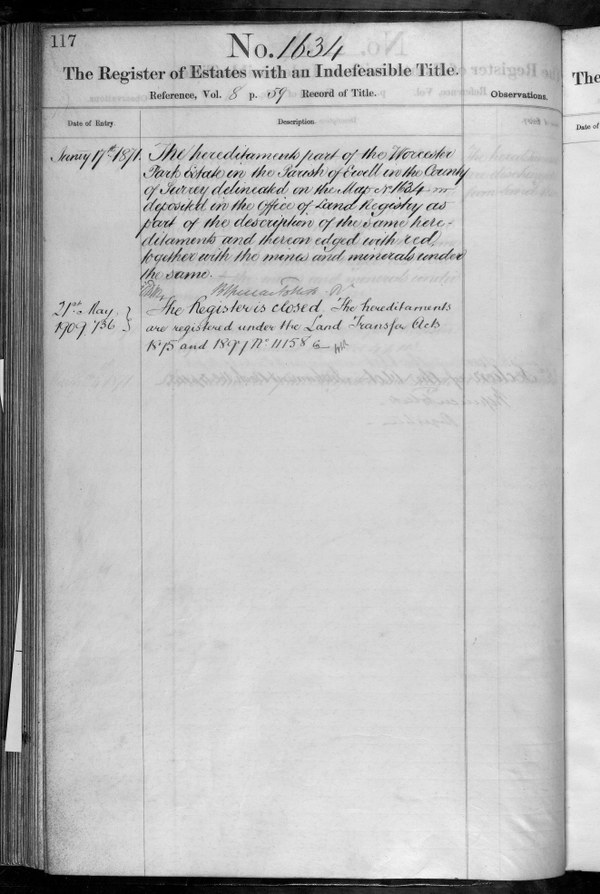 117
No. 1634
The Register of Estates with an Indefeasible Title.
Reference, Vol. 8 p. 59 Record of Title.
Observations.
Date of Entry
Description.
Jany 17th 1871.
The hereditaments part of the Worcester
Park Estate in the Parish of Ewell in the County
of Surrey delineated on the Map No 1634
deposited in the Office of Land Registry as
part of the description of the same here-
ditaments and thereon edged with red,
together with the mines and minerals under
the same.
21st May
1909 736
The Register is closed. The hereditaments
are registered under the Land Transfer Acts
1875 and 1897 No 11158
The
Date of